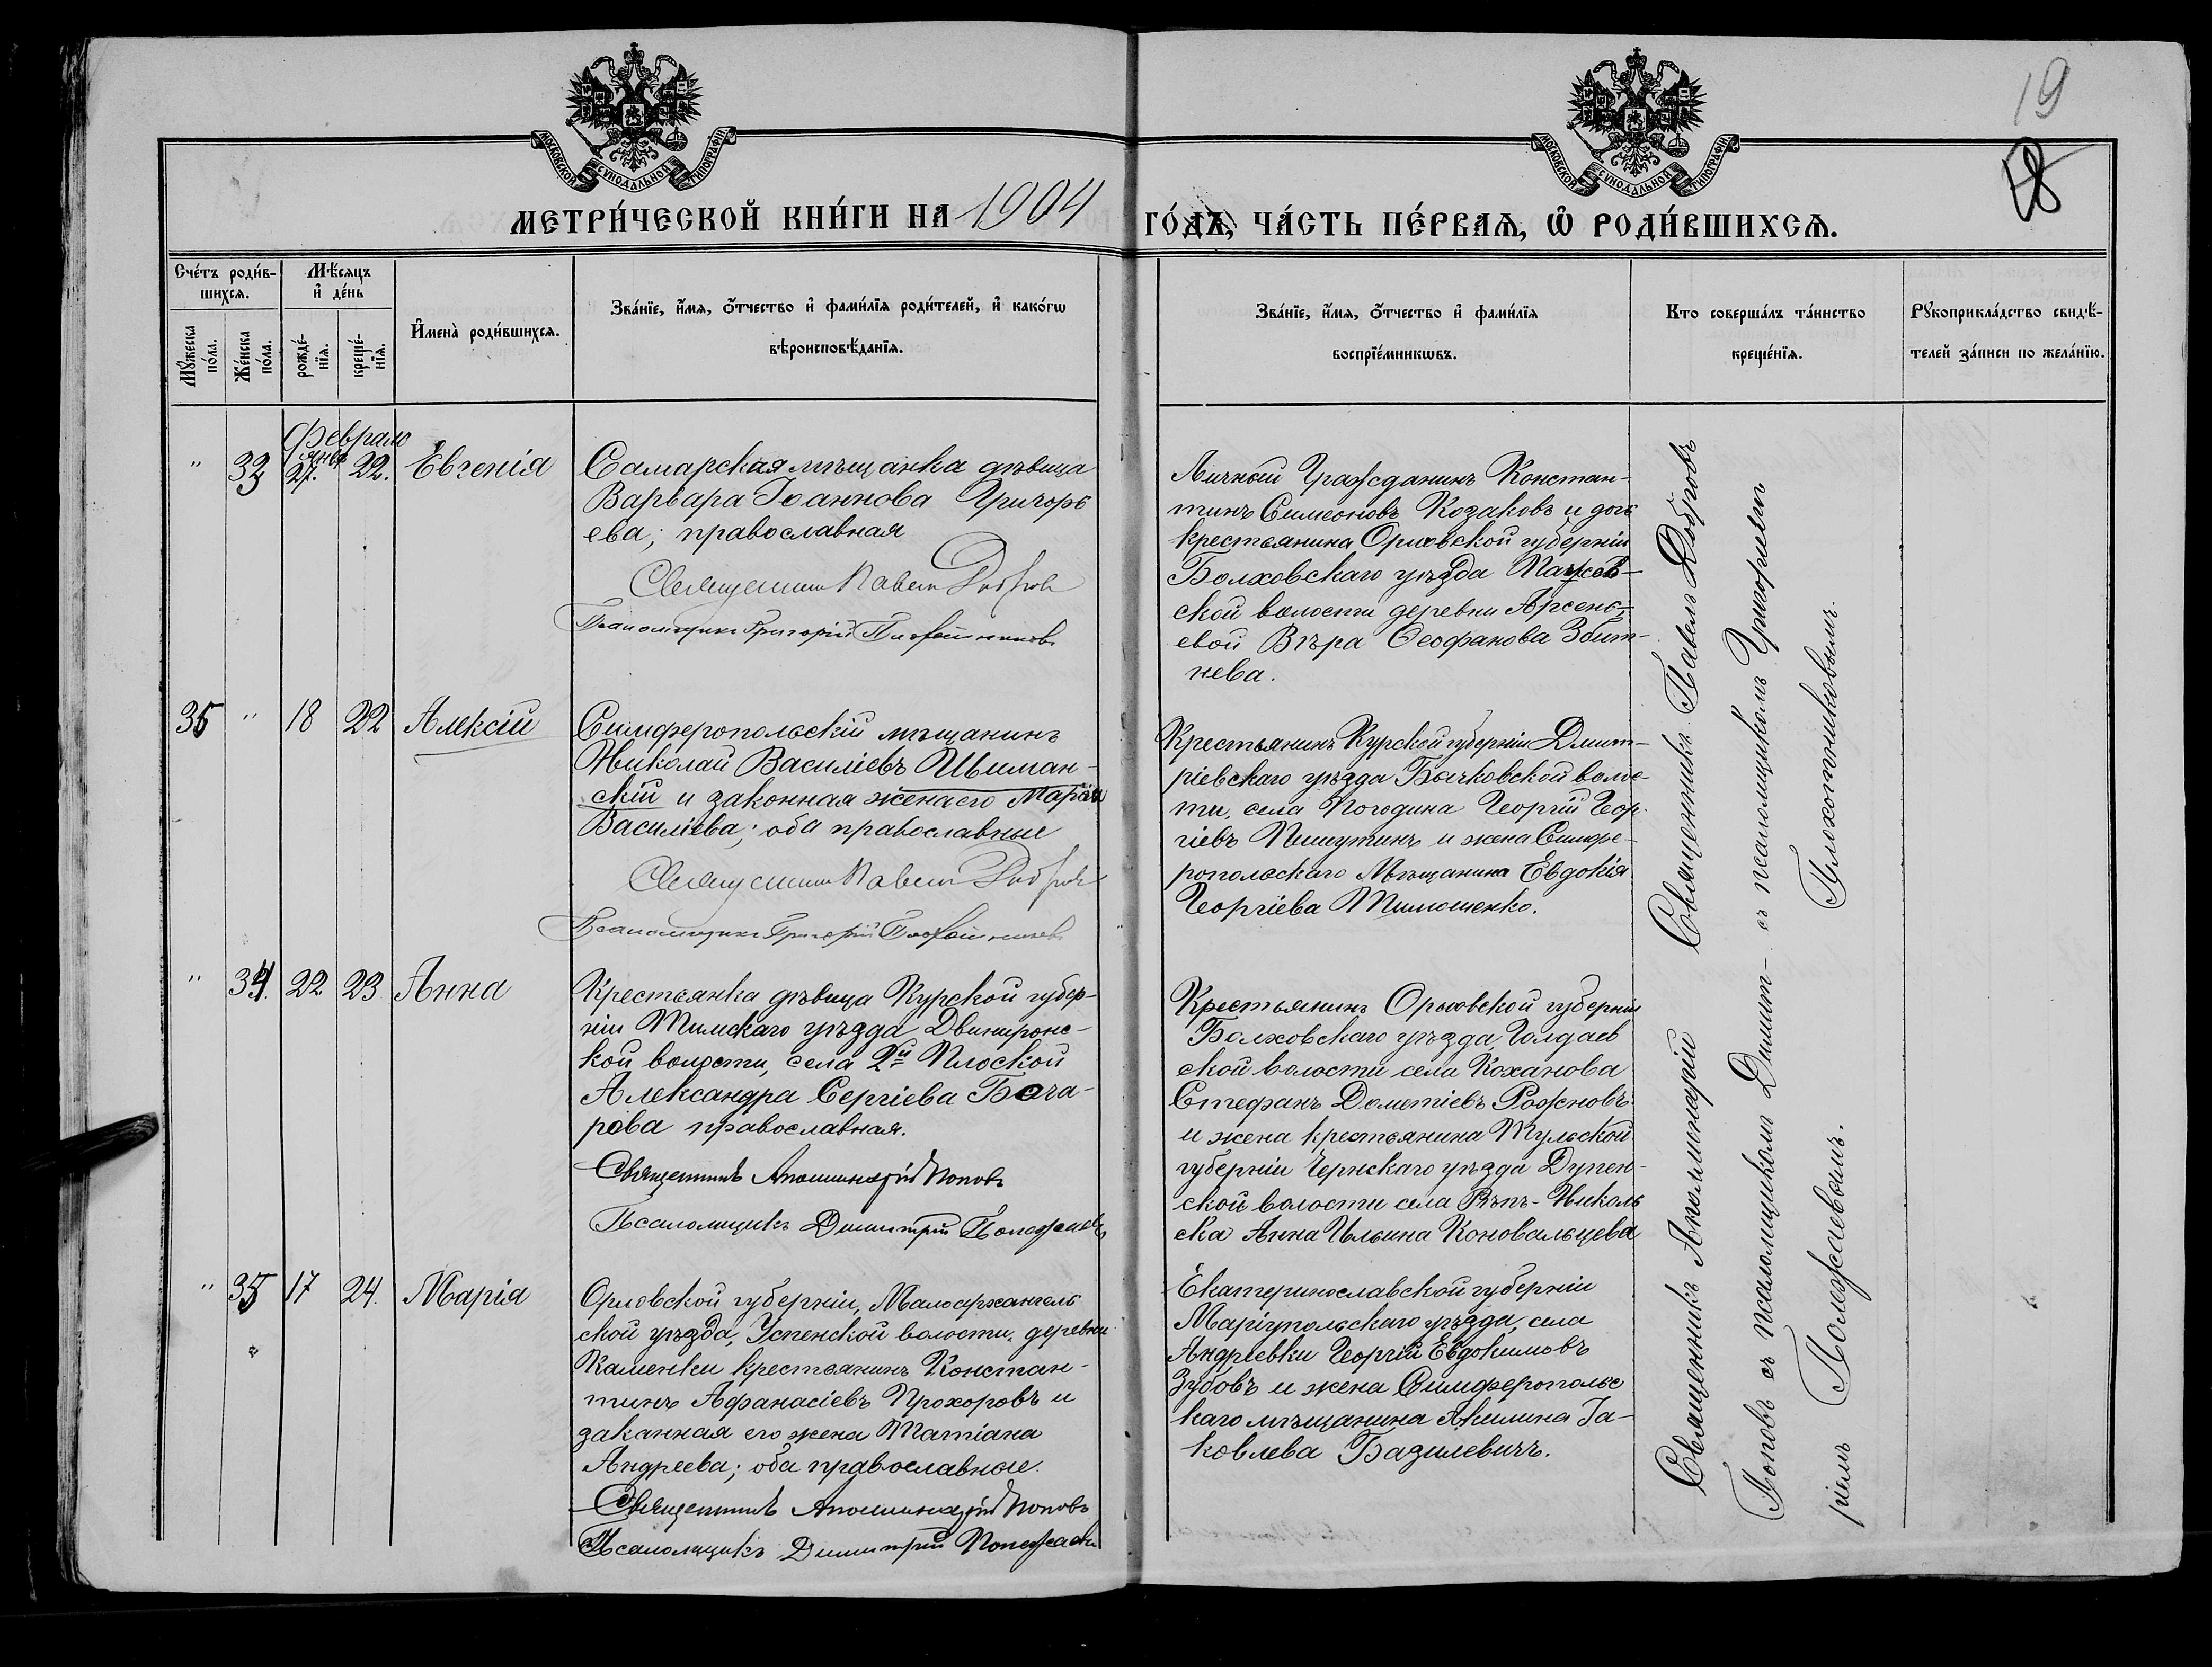 19
18
МОСКОВСКОЙ СѴНОДАЛЬНОЙ ТИПОГРАФІИ
МОСКОВСКОЙ СѴНОДАЛЬНОЙ ТИПОГРАФІИ
МЕТРИ́ЧЕСКОЙ КНИ́ГИ НА 1904 ГО́ДЪ, ЧА́СТЬ ПЕ́РВАЯ, Ѡ҆ РОДИ́ВШИХСЯ.
Сче́тъ роди́в-
шихся.
Мꙋ́жеска
по́ла.
Же́нска
по́ла.
Мѣ́сяцъ
и҆ де́нь
рожде́-
нїя.
креще́-
нїя.
И҆мена̀ роди́вшихся.
Зва́нїе, и҆́мя, ѻ҆́тчество и҆ фами́лїя роди́телей, и҆ како́гѡ
вѣроисповѣ́данїя.
Зва́нїе, и҆́мя, ѻ҆́тчество и҆ фами́лїя
воспрїе́мникѡвъ.
Кто соверша́лъ та́инство
креще́нїя.
Рꙋкоприкла́дство свидѣ́-
телей за́писи по жела́нїю.
Февраля
Янв
" 33 27. 22. Евгенія
Самарская мѣщанка дѣвица
Варвара Іоаннова Григорь
ева; православная
Священникъ Павелъ Добровъ
Псаломщикъ Григорій Плохотниковъ
Личный Гражданинъ Констан-
тинъ Симеоновъ Козаковъ и дочь
крестьянина Орловской губерніи
Болховскаго уѣзда
ской волости деревни Арсень-
евой Вѣра Ѳеофанова Збит-
нева.
35 " 18 22 Алексій
Симферопольскій мѣщанинъ
Николай Василіевъ
скій и законная жена его Марія
Василіева; оба православные
Священникъ Павелъ Добровъ
Псаломщикъ Григорій Плохотниковъ
Крестьянинъ Курской губерніи Дмит-
ріевскаго уѣзда Бычковской волос-
ти, села Погодина Георгій Геор-
гіевъ Пишутинъ и жена Симфе-
ропольскаго Мѣщанина Евдокія
Георгіева Тимошенко.
Священникъ Павелъ Добровъ
съ псаломщикомъ Григоріемъ
Плохотниковымъ.
" 34. 22 23 Анна
Крестьянка дѣвица Курской губер-
ніи Тимскаго уѣзда
кой волости, села 2й Плоской
Александра Сергіева Боча-
рова православная.
Священникъ Аполлинарій Поповъ
Псаломщикъ Димитрій Полежаевъ
Крестьянинъ Орловской губерніи
Болховскаго уѣзда, Голдаев
ской волости села Коханова
Стефанъ Дометіевъ Рожновъ
и жена крестьянина Тульской
губерніи Чернскаго уѣзда Дупен-
ской волости села
ска Анна Ильина Коновальцева
" 35 17 24. Марія
Орловской губерніи, Малоархангель
ской уѣзда, Успенской волости, деревни
Каменки крестьянинъ Констан-
тинъ Афанасіевъ Прохоровъ и
заканная его жена Татіана
Андреева; оба православные.
Священникъ Аполлинарій Поповъ
Псаломщикъ Димитрій Полежаевъ
Екатеринославской губерніи
Маріупольскаго уѣзда, села
Андреевки Георгій Евдокимовъ
Зубовъ и жена Симферопольс
каго мѣщанина Акилина Іа-
ковлева Базилевичъ.
Священникъ Аполлинарій
Поповъ съ псаломщикомъ Димит-
ріемъ Полежаевымъ.